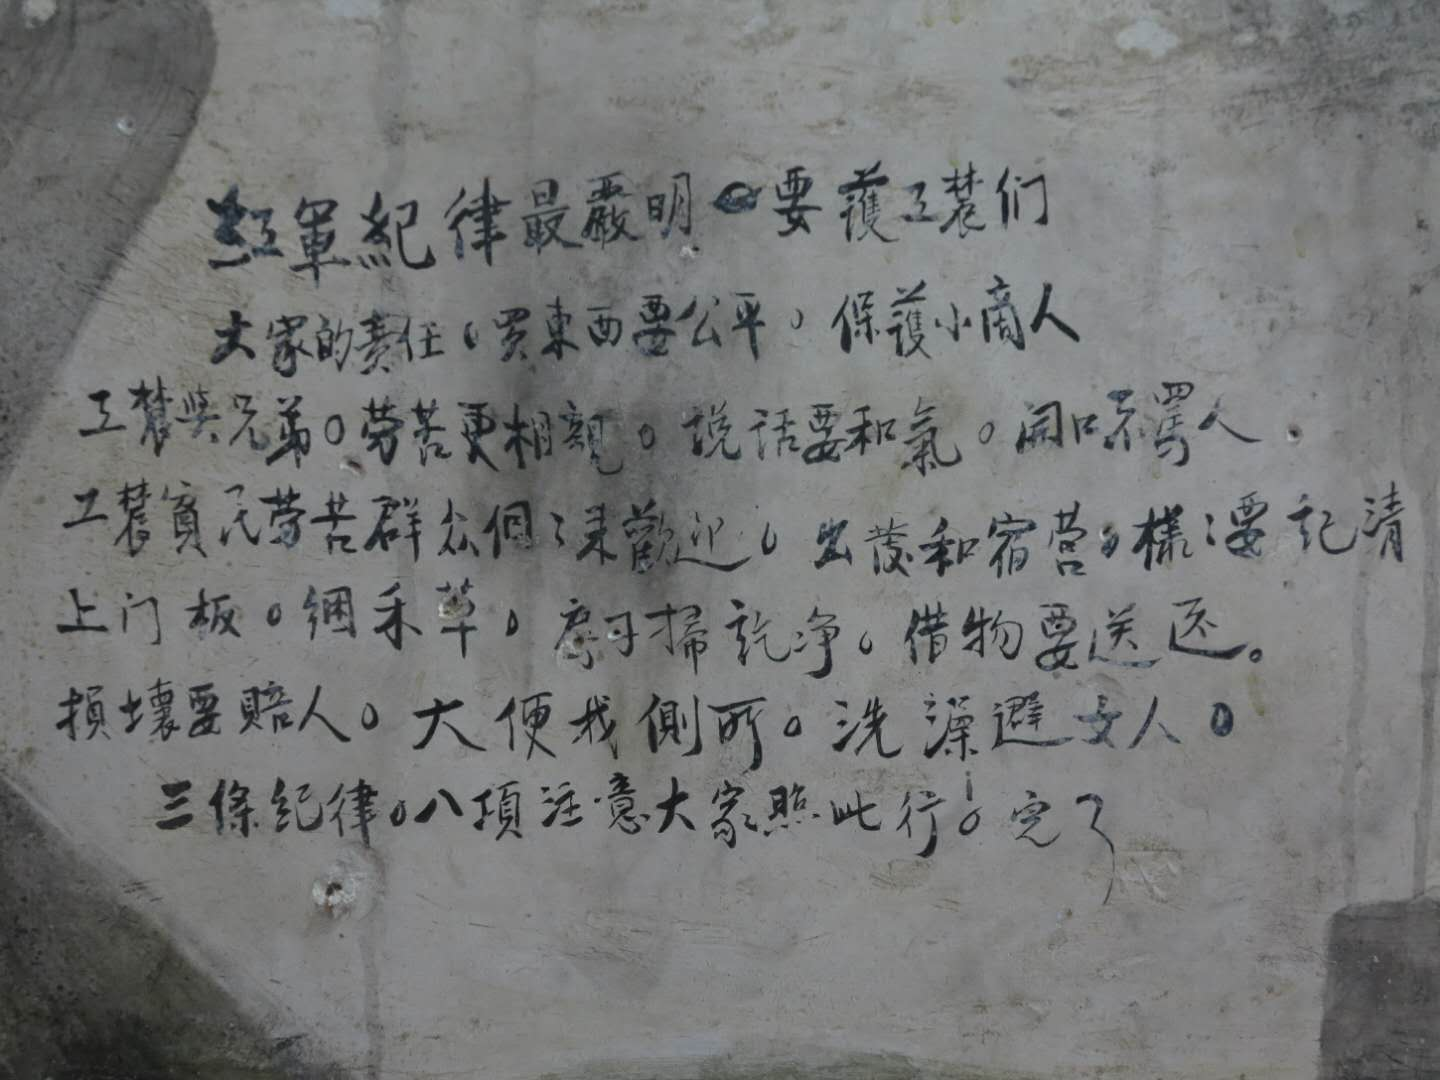 紅軍紀律最嚴明。要護工農们
大家的責任。買東西要公平。保護小商人
工農與兄弟。勞苦更相親。說話要和氣。開口不罵人.
工農貧民勞苦群众個々来歡迎。出發和宿营。樣々要記清
上门板。綑禾草。房子掃乾净。借物要送还。
損壞要賠人。大便找側所。洗澡避女人。
三條紀律。八項注意大家照此行!。完了